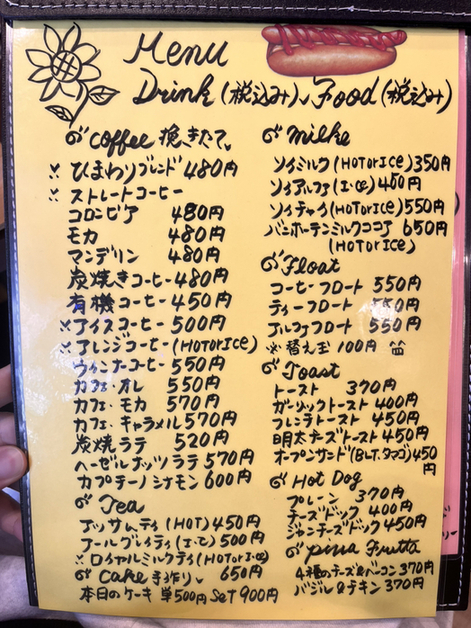 Menu
Drink (税込み)、Food (税込み)
Coffee 挽きたて
ひまわりブレンド 480円
ストレートコーヒー
コロンビア 480円
モカ 480円
マンデリン 480円
炭焼きコーヒー 480円
有機コーヒー 450円
アイスコーヒー 500円
アレンジコーヒー (HOTorICE)
ウィンナーコーヒー 550円
カフェ・オレ 550円
カフェ・モカ 570円
カフェ・キャラメル 570円
炭焼ラテ 520円
ヘーゼルナッツラテ 570円
カプチーノシナモン 600円
Tea
アッサムティ (HOT) 450円
アールグレイティ (I・C) 500円
ロイヤルミルクティ (HOTorI・C)
650円
Cake 手作り
本日のケーキ 単500円 Set 900円
milke
ソイミルク (HOTorICE) 350円
ソイアルファ (I・C) 450円
ソイチャイ (HOTorICE) 550円
バンホーテンミルクココア 650円
(HOTorICE)
Float
コーヒーフロート 550円
ティーフロート 550円
アルファフロート 550円
※替え玉 100円
Toast
トースト 370円
ガーリックトースト 400円
フレンチトースト 450円
明太チーズトースト 450円
オープンサンド (B.L.T. タマゴ) 450円
Hot Dog
プレーン 370円
チーズドック 400円
ジャンチーズドック 450円
pizza Frutta
4種のチーズ&ベーコン 370円
バジル&チキン 370円